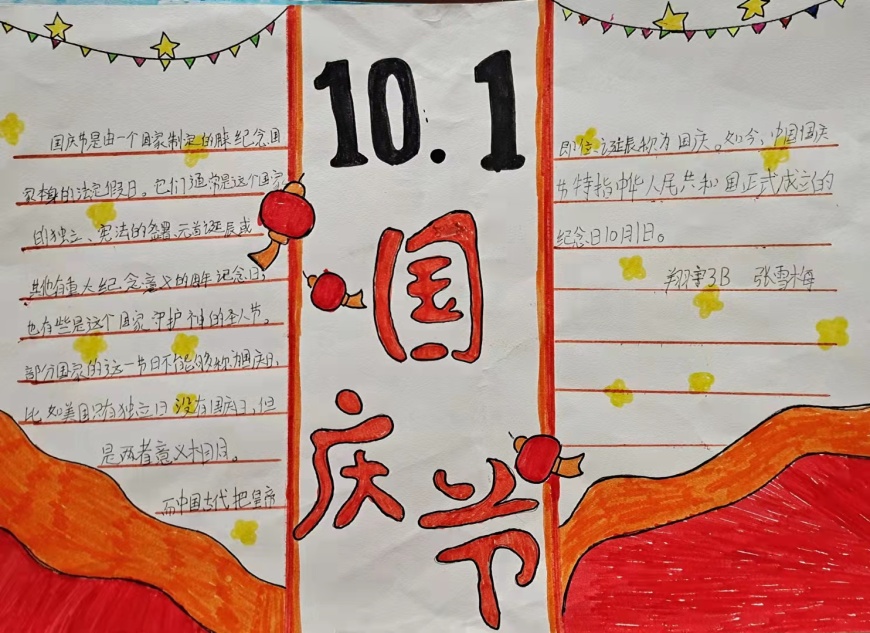 国庆节是由一个国家制定的用来纪念国
家本身的法定假日。它们通常是这个国家
的独立、宪法的签署、元首诞辰或
其他有重大纪念意义的周年纪念日;
也有些是这个国家守护神的圣人节。
部分国家的这一节日不能够称为国庆日,
比如美国只有独立日没有国庆日,但
是两者意义相同。
而中国古代把皇帝
10.1
国庆节
即位、诞辰称为国庆。如今,中国国庆
节特指中华人民共和国正式成立的
纪念日10月1日。
翔宇3B 张雪梅